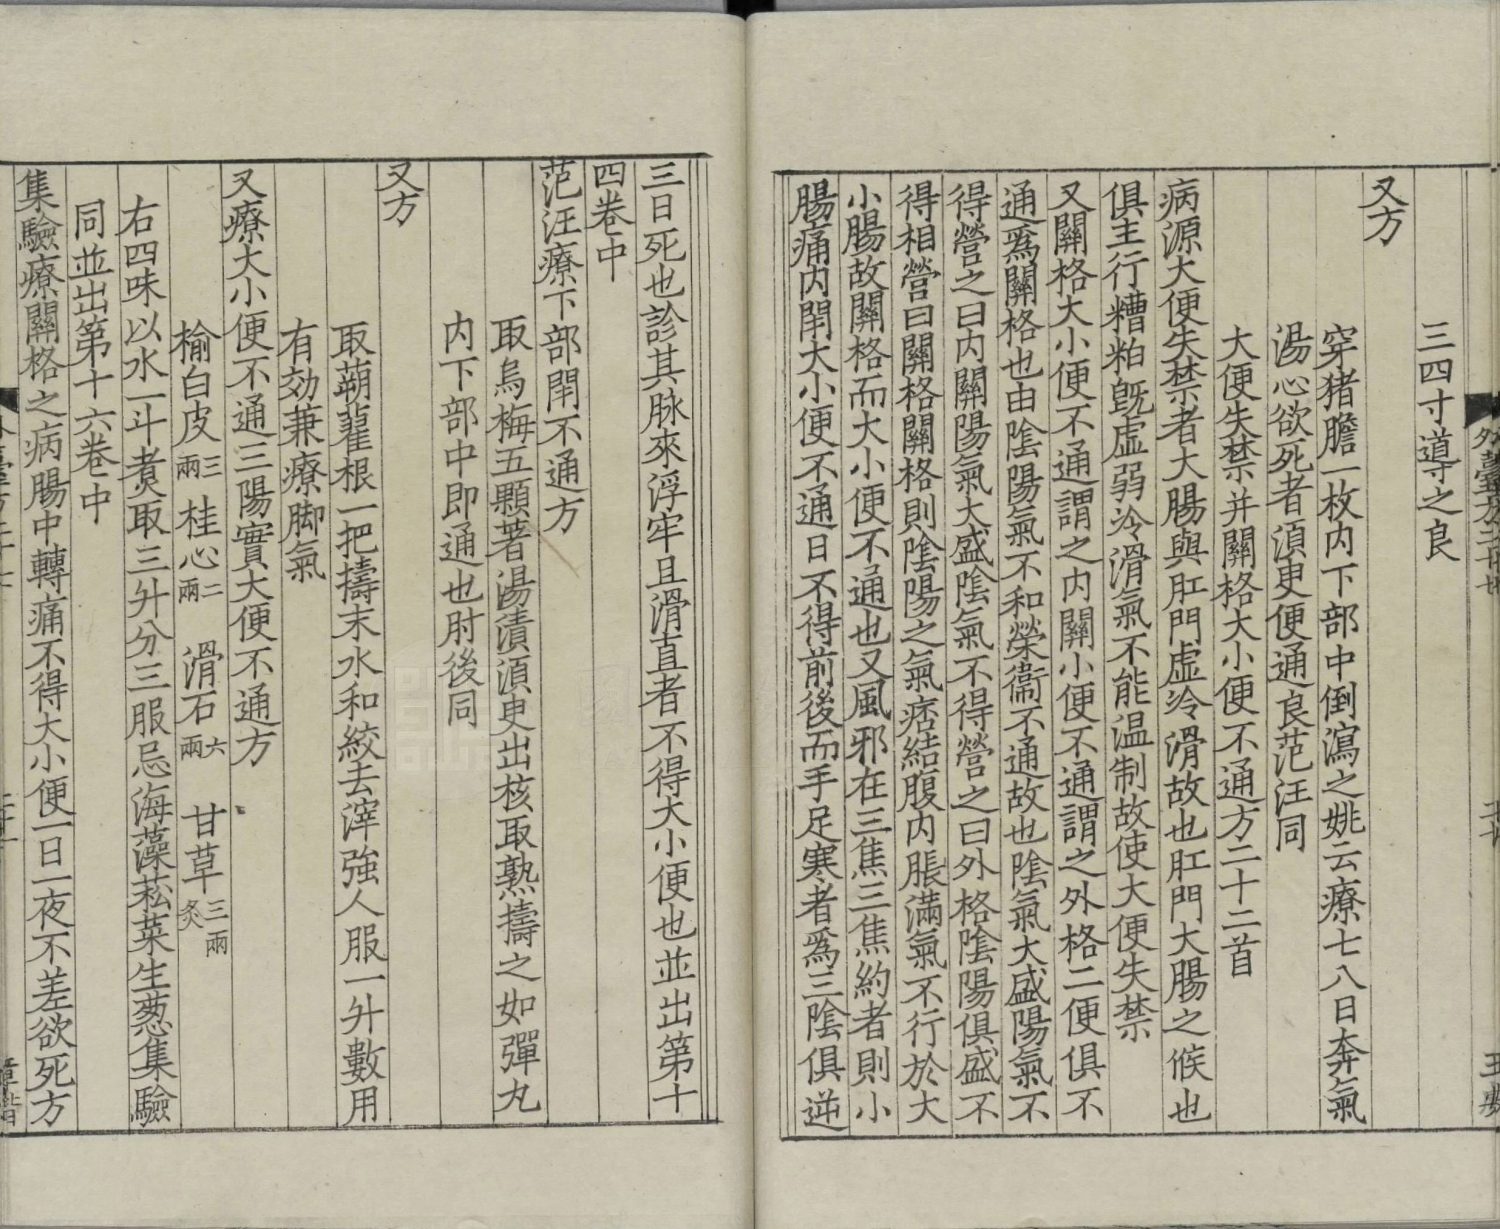 三四寸導之良
又方
穿猪膽一枚内下部中倒瀉之姚云療七八日奔氣
湯心欲死者湏更便通良范汪同
大便失禁并關格大小便不通方二十二首
病源大便失禁者大腸與肛門虚冷滑故也肛門大腸之候也
俱主行糟粕旣虚弱冷滑氣不能温制故使大便失禁
又關格大小便不通謂之内關小便不通謂之外格二便俱不
通爲關格也由陰陽氣不和榮衞不通故也陰氣大盛陽氣不
得營之曰内關陽氣大盛陰氣不得營之曰外格陰陽俱盛不
得相營曰關格關格則陰陽之氣痞結腹内脹滿氣不行於大
小腸故關格而大小便不通也又風邪在三焦三焦約者則小
腸痛内閈大小便不通日不得前後而手足寒者爲三陰俱逆
三日死也診其脉來浮牢且滑直者不得大小便也並出第十
四卷中
范汪療下部閈不通方
取烏梅五顆著湯漬湏臾出核取熟擣之如彈丸
内下部中即通也肘後同
又方
取蒴藋根一把擣末水和絞去滓強人服一升數用
有効兼療脚氣
又療大小便不通三陽實大便不通方
榆白皮三兩 桂心二兩 滑石六兩 甘草三兩炙
右四味以水一斗煑取三升分三服忌海藻菘菜生葱集驗
同並出第十六卷中
集驗療關格之病腸中轉痛不得大小便一日一夜不差欲死方